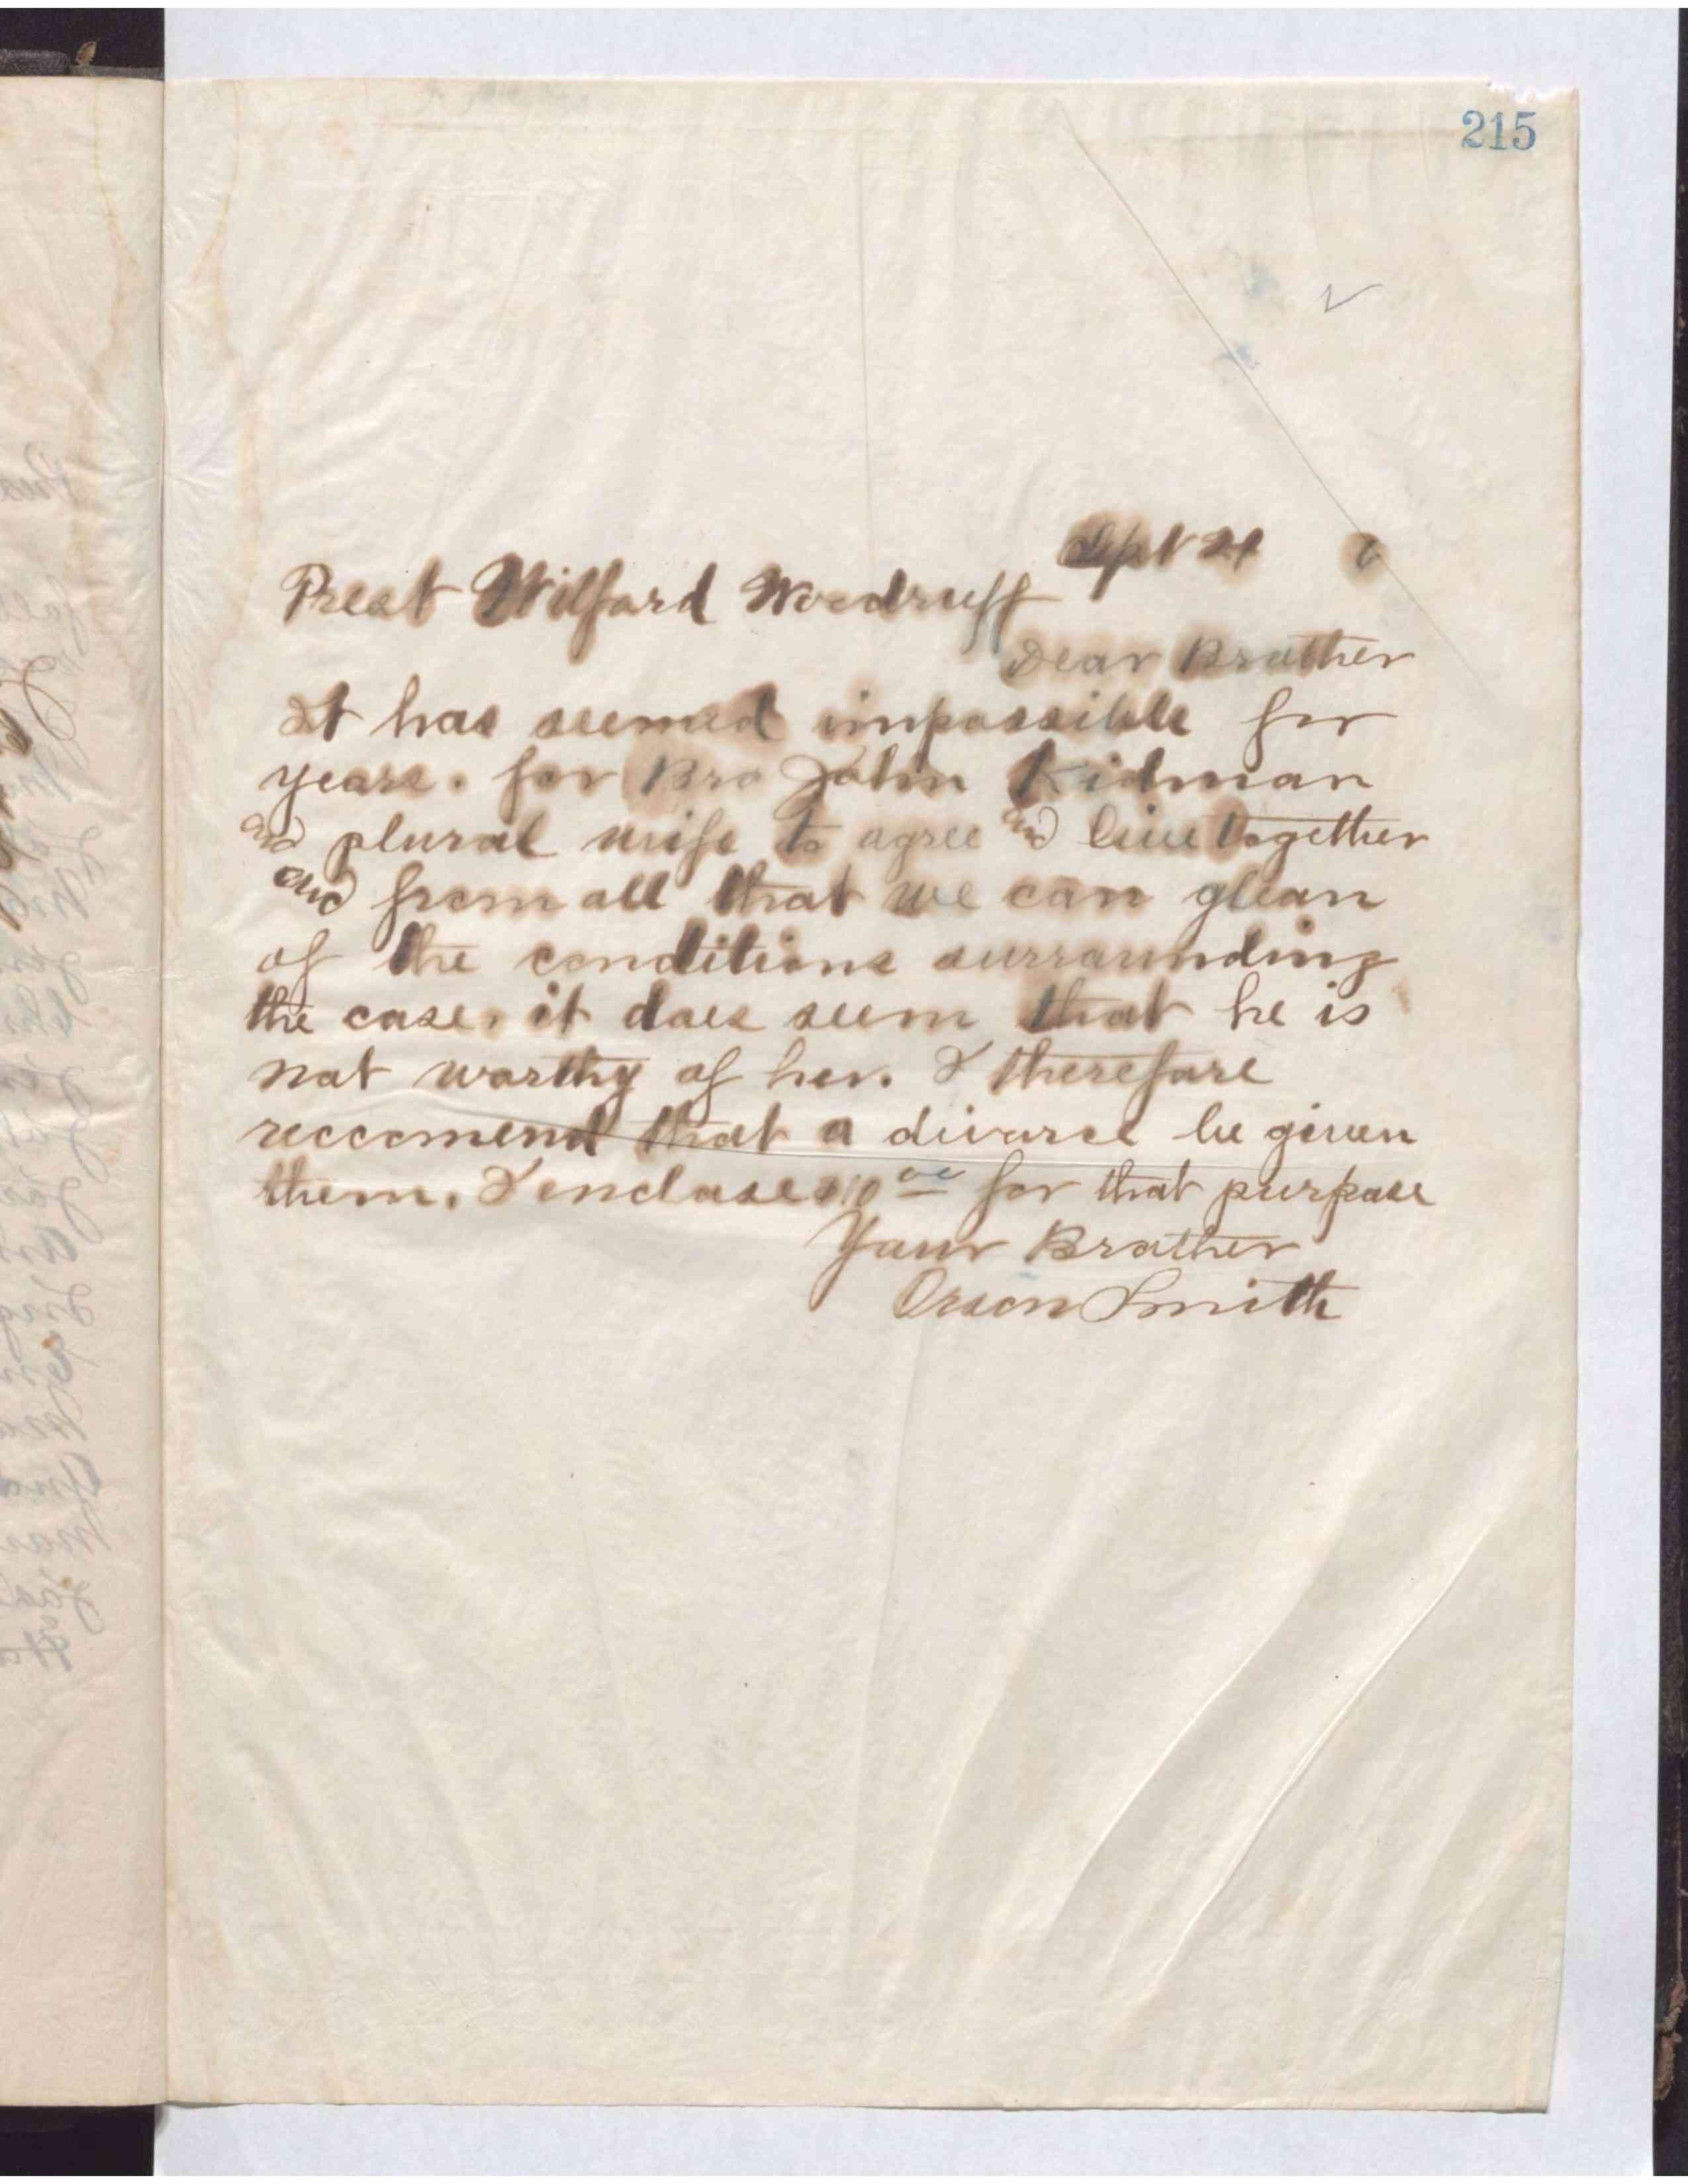 215
Sept 24 6
Prest Wilford Woodruff
Dear Brother
It has seemed impossible for
years. for Bro John Kidman
and plural wife to agree and live together
and from all that we can glean
of the conditions surrounding
the case, it does seem that he is
not worthy of her. I therefore
reccomend that a divorce be given
them. I enclose $10 00 for that purpose
Your Brother
Orson Smith